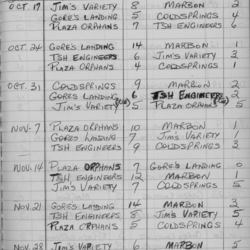 OCT. 17 JIM'S VARIETY 8 MARBON 2
GORE'S LANDING 5 COLDSPRINGS 4
PLAZA ORPHANS 7 TSH ENGINEERS 6
OCT. 24 GORES LANDING 14 MARBON 1
TSH ENGINEERS 6 JIM'S VARIETY 3
PLAZA ORPHANS 4 COLDSPRINGS 1
OCT. 31 COLDSPRINGS MARBON 2
GORES LANDING 6 TSH ENGINEERS
JIM'S VARIETY 5 PLAZA ORPHANS 5
NOV. 7 PLAZA ORPHANS 10 MARBON 1
GORES LANDING 7 JIM'S VARIETY 1
TSH ENGINEERS 9 COLDSPRINGS 3
NOV. 14 PLAZA ORPHANS 7 GORE'S LANDING 0
TSH ENGINEERS 12 MARBON 1
JIM'S VARIETY 7 COLDSPRINGS 5
NOV. 21 GORES LANDING 14 MARBON 2
TSH ENGINEERS 8 JIM'S VARIETY 5
PLAZA ORPHANS 5 COLDSPRINGS 4
NOV. 28 JIM'S VARIETY 6 MARBON 2